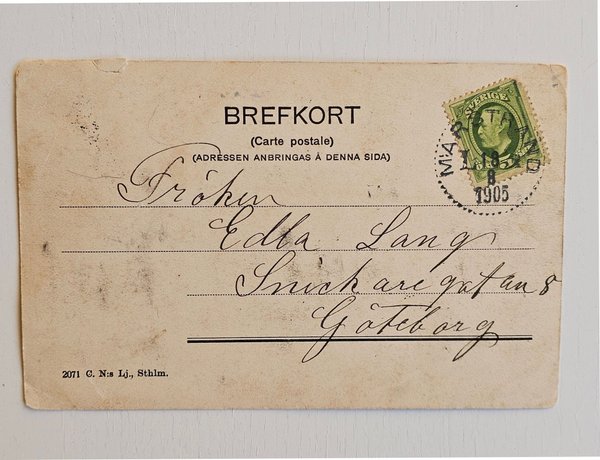 BREFKORT
(Carte postale)
(ADRESSEN ANBRINGAS Å DENNA SIDA)
SVERIGE
MARSTRAND
8
1905
Fröken
Edla Lang
Snickaregatan 8
Göteborg
2071 C. N:s Lj., Sthlm.